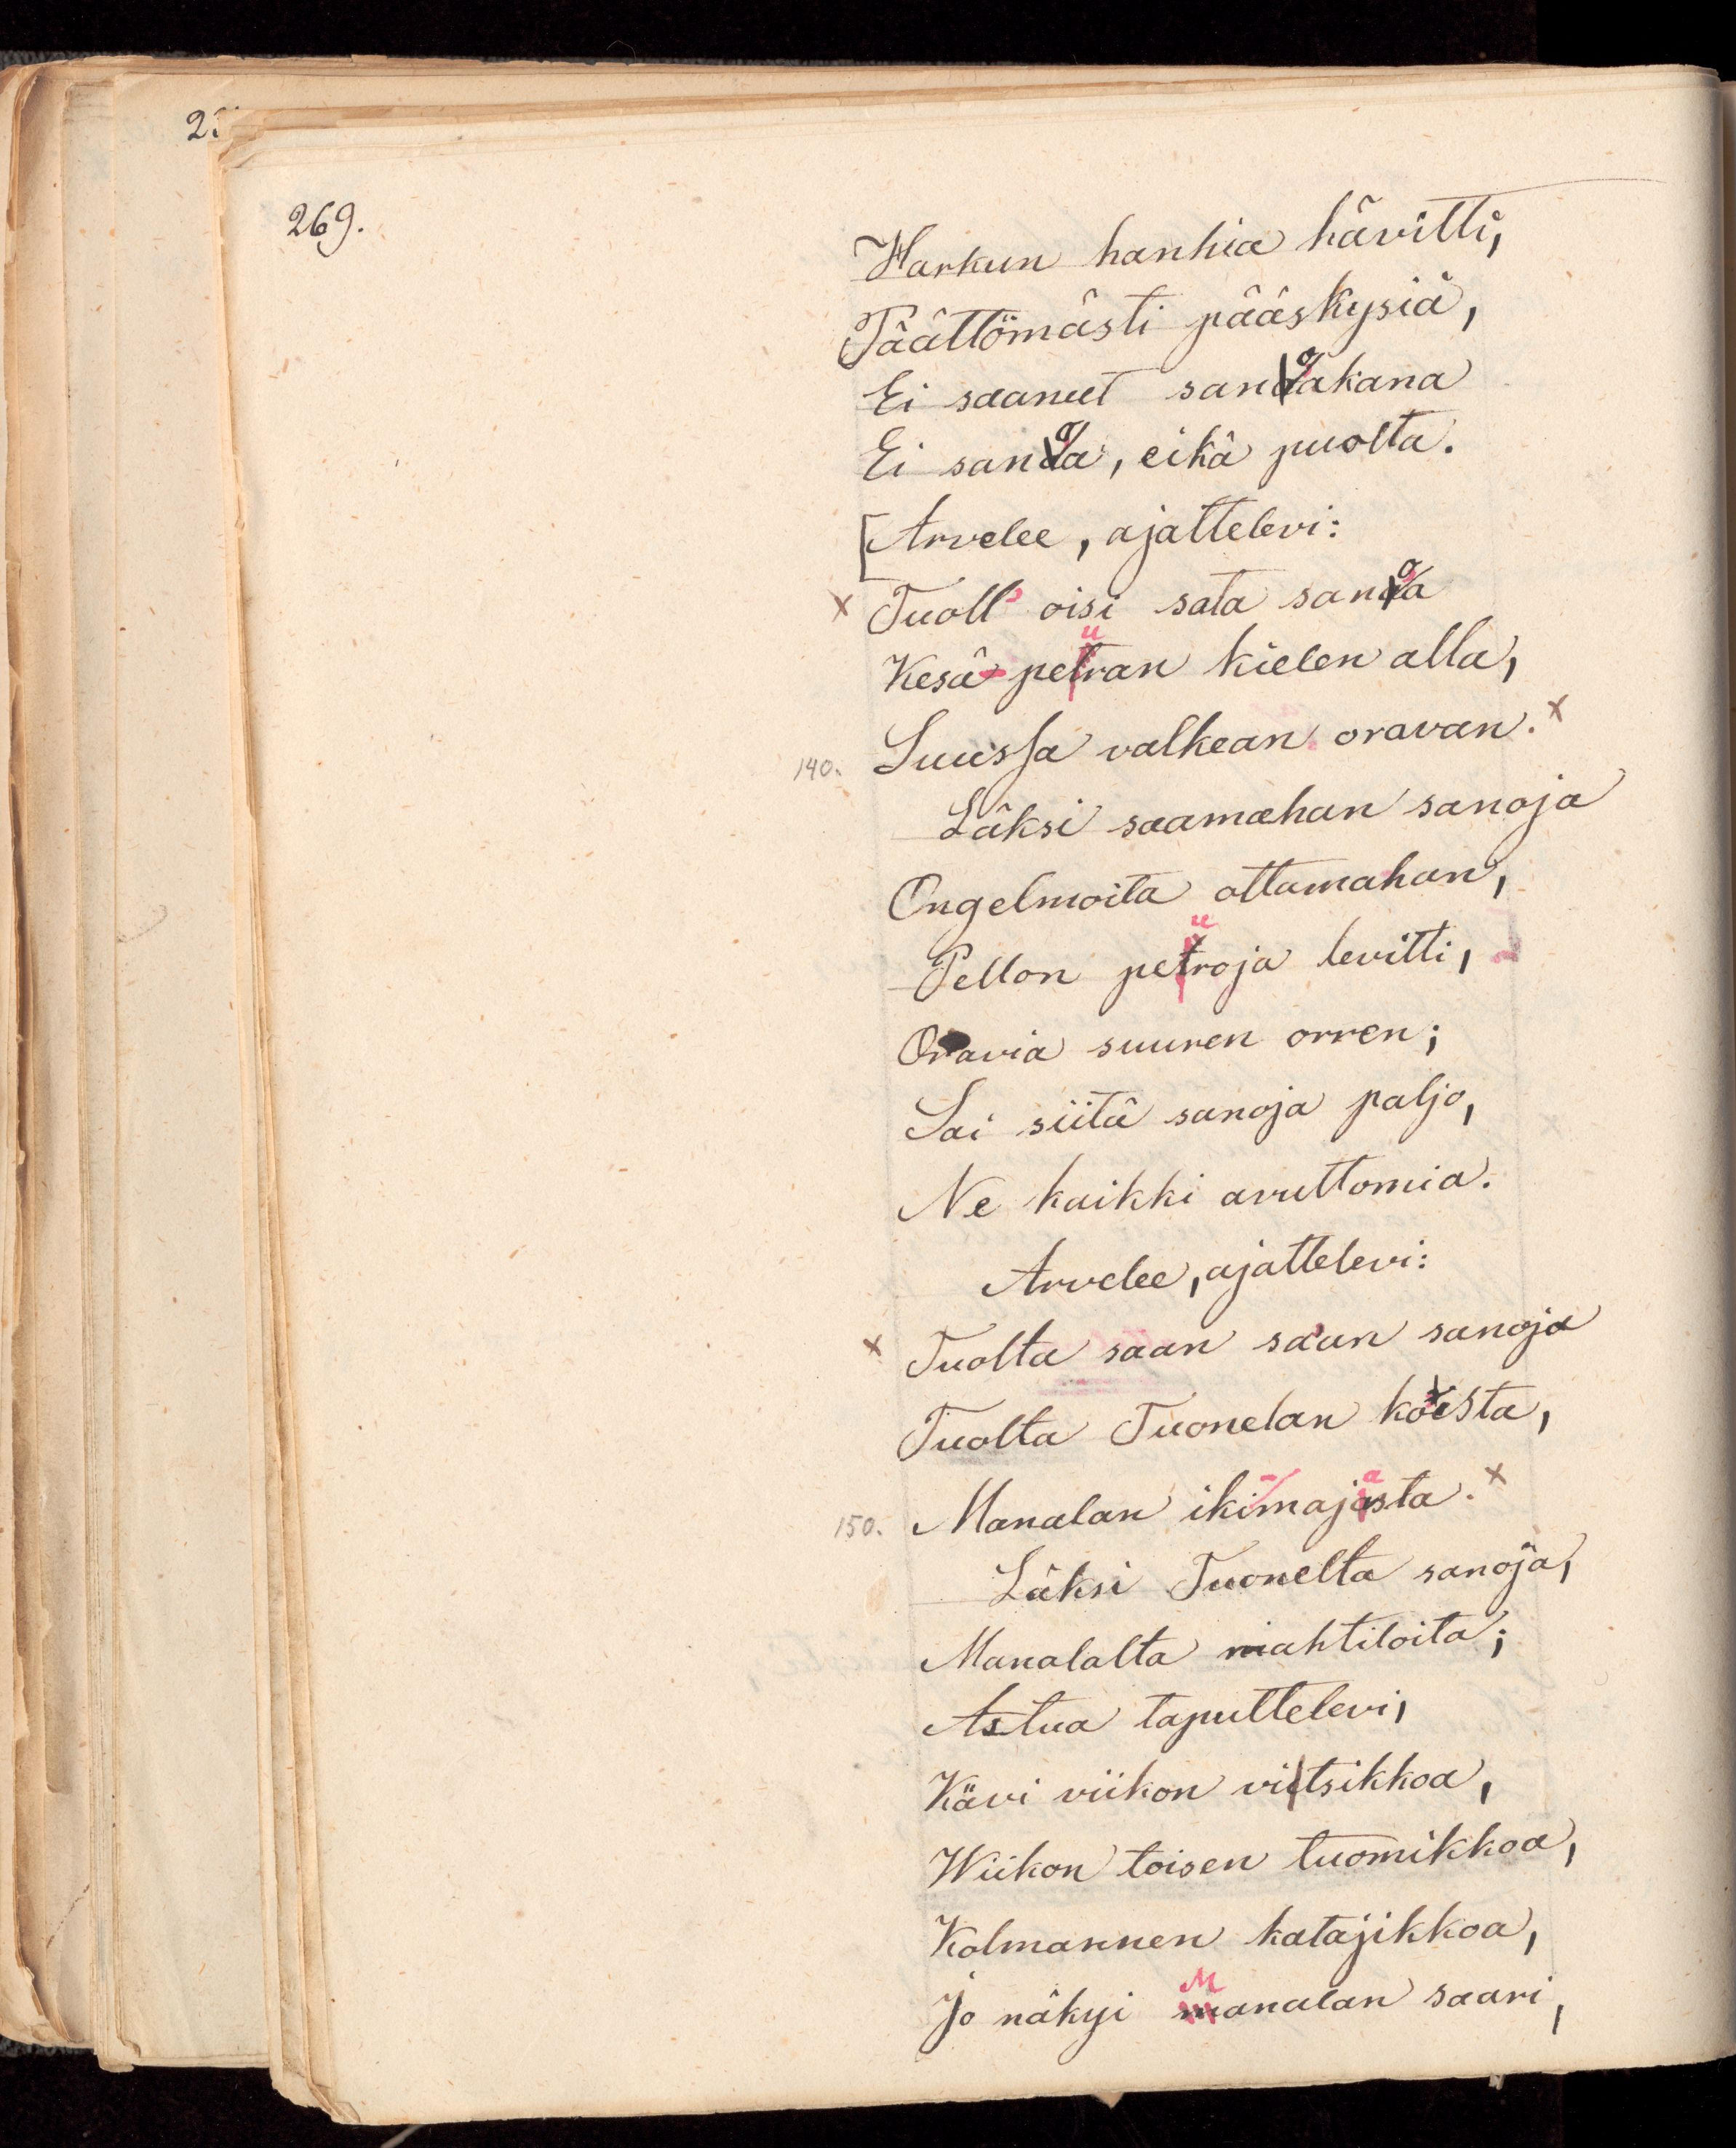 269.
Harkun hanhia hävitti,
Päättömästi pääskysiä,
Ei saanut sanoakana
Ei sanoa, eikä puolta.
[Arvelee, ajattelevi:
x Tuoll' oisi sata sanoa
Kesä peuran kielen alla,
Suussa valkean oravan. x
140.
Läksi saamahan sanoja
Ongelmoita ottamahan,
Pellon peuroja levitti,
Oravia suuren orren;
Sai siitä sanoja paljo,
Ne kaikki avuttomia.
Arvelee, ajattelevi:
x Tuolta saan saan sanoja
Tuolta Tuonelan koista,
150. Manalan iki-majasta. x
Läksi Tuonelta sanoja,
Manalalta mahtiloita;
Astua taputtelevi,
Kävi viikon vitsikkoa,
Wiikon toisen tuomikkoa,
Kolmannen katajikkoa,
Jo näkyi Manalan saari,